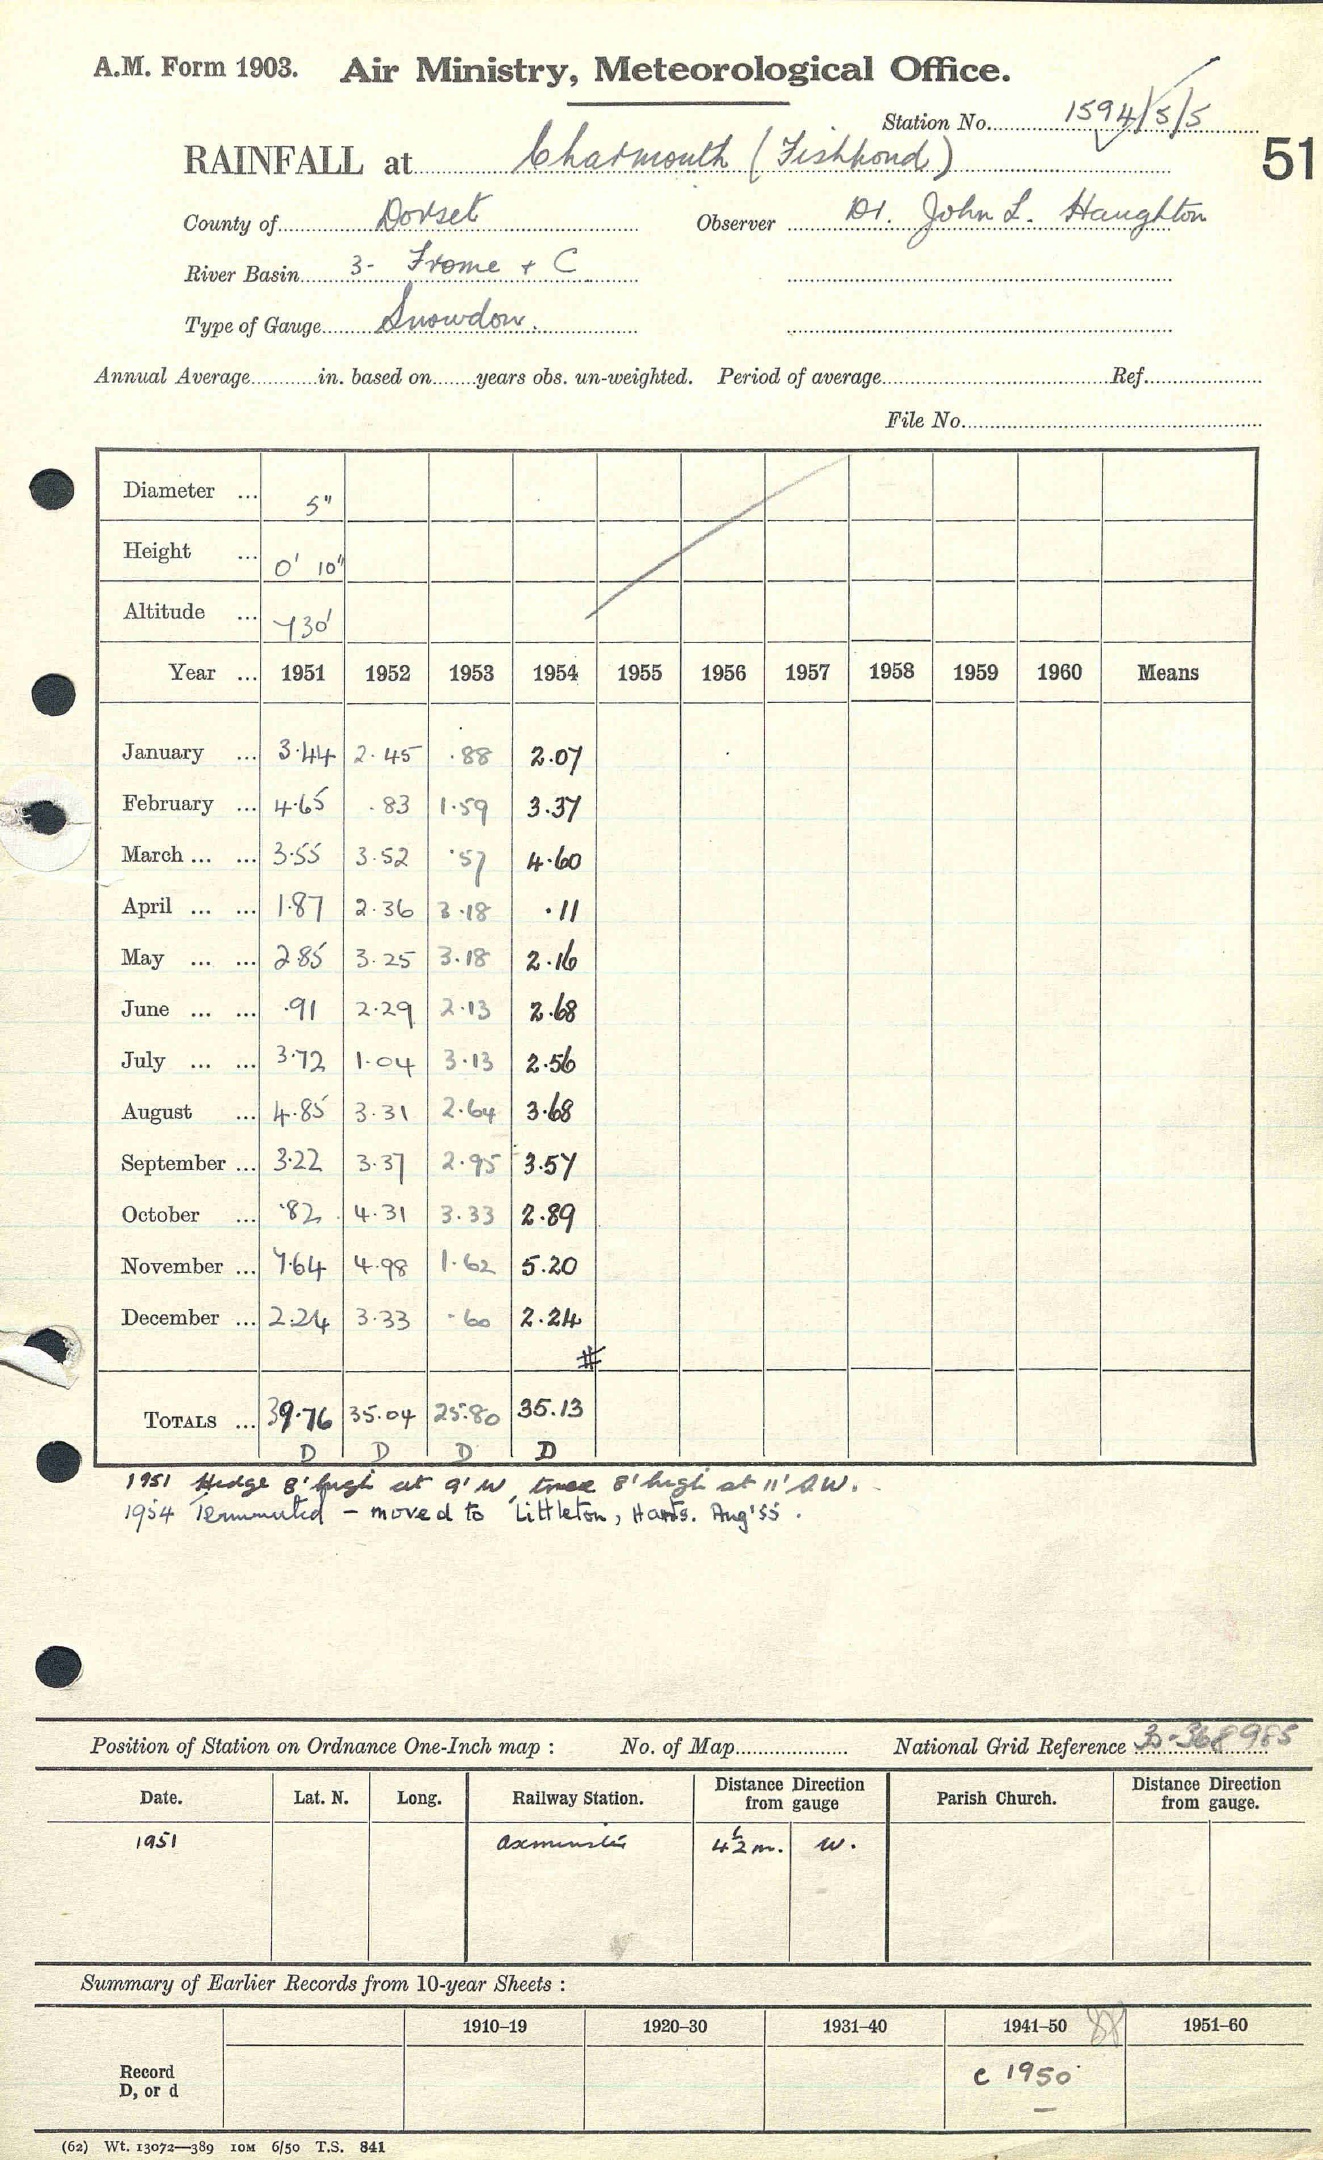 A.M. Form 1903. Air Ministry, Meteorological Office.
Station No. 1594/5/5
RAINFALL at Charmouth (Fishpond) 51
County of Dorset Observer Dr. John L. Haughton
River Basin 3- Frome + C
Type of Gauge Snowdon.
Annual Average in. based on years obs. un-weighted. Period of average Ref.
File No.
Diameter ... 5"
Height ... 0' 10"
Altitude ... 730'
Year ... 1951 1952 1953 1954 1955 1956 1957 1958 1959 1960 Means
January ... 3.44 2.45 .88 2.07
February ... 4.65 .83 1.59 3.37
March ... ... 3.55 3.52 .57 4.60
April ... ... 1.87 2.36 3.18 .11
May ... ... 2.85 3.25 3.18 2.16
June ... ... .91 2.29 2.13 2.68
July ... ... 3.72 1.04 3.13 2.56
August ... 4.85 3.31 2.64 3.68
September ... 3.22 3.37 2.95 3.57
October ... .82 4.31 3.33 2.89
November ... 7.64 4.98 1.62 5.20
December ... 2.24 3.33 .60 2.24
#
TOTALS ... 39.76 35.04 25.80 35.13
D D D D
1951 Hedge 8' high at 9' W, tree 8' high at 11' S.W.
1954 Terminated - moved to Littleton, Hants. Aug '55.
Position of Station on Ordnance One-Inch map : No. of Map National Grid Reference 368985
Date. Lat. N. Long. Railway Station. Distance Direction from gauge Parish Church. Distance Direction from gauge.
1951 Axminster 4½ m. W.
Summary of Earlier Records from 10-year Sheets :
1910–19 1920–30 1931–40 1941–50 1951–60
Record D, or d c 1950
(62) Wt. 13072—389 10M 6/50 T.S. 841